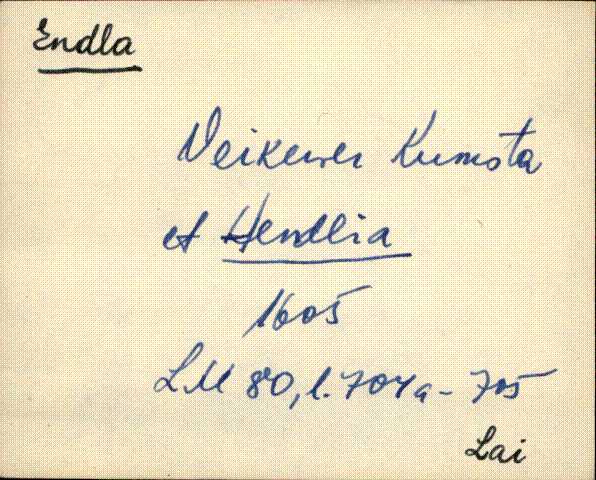 Endla
Veikewer Kumsta
et Hendlia
1605
LM 80, l. 704a - 705
Lai